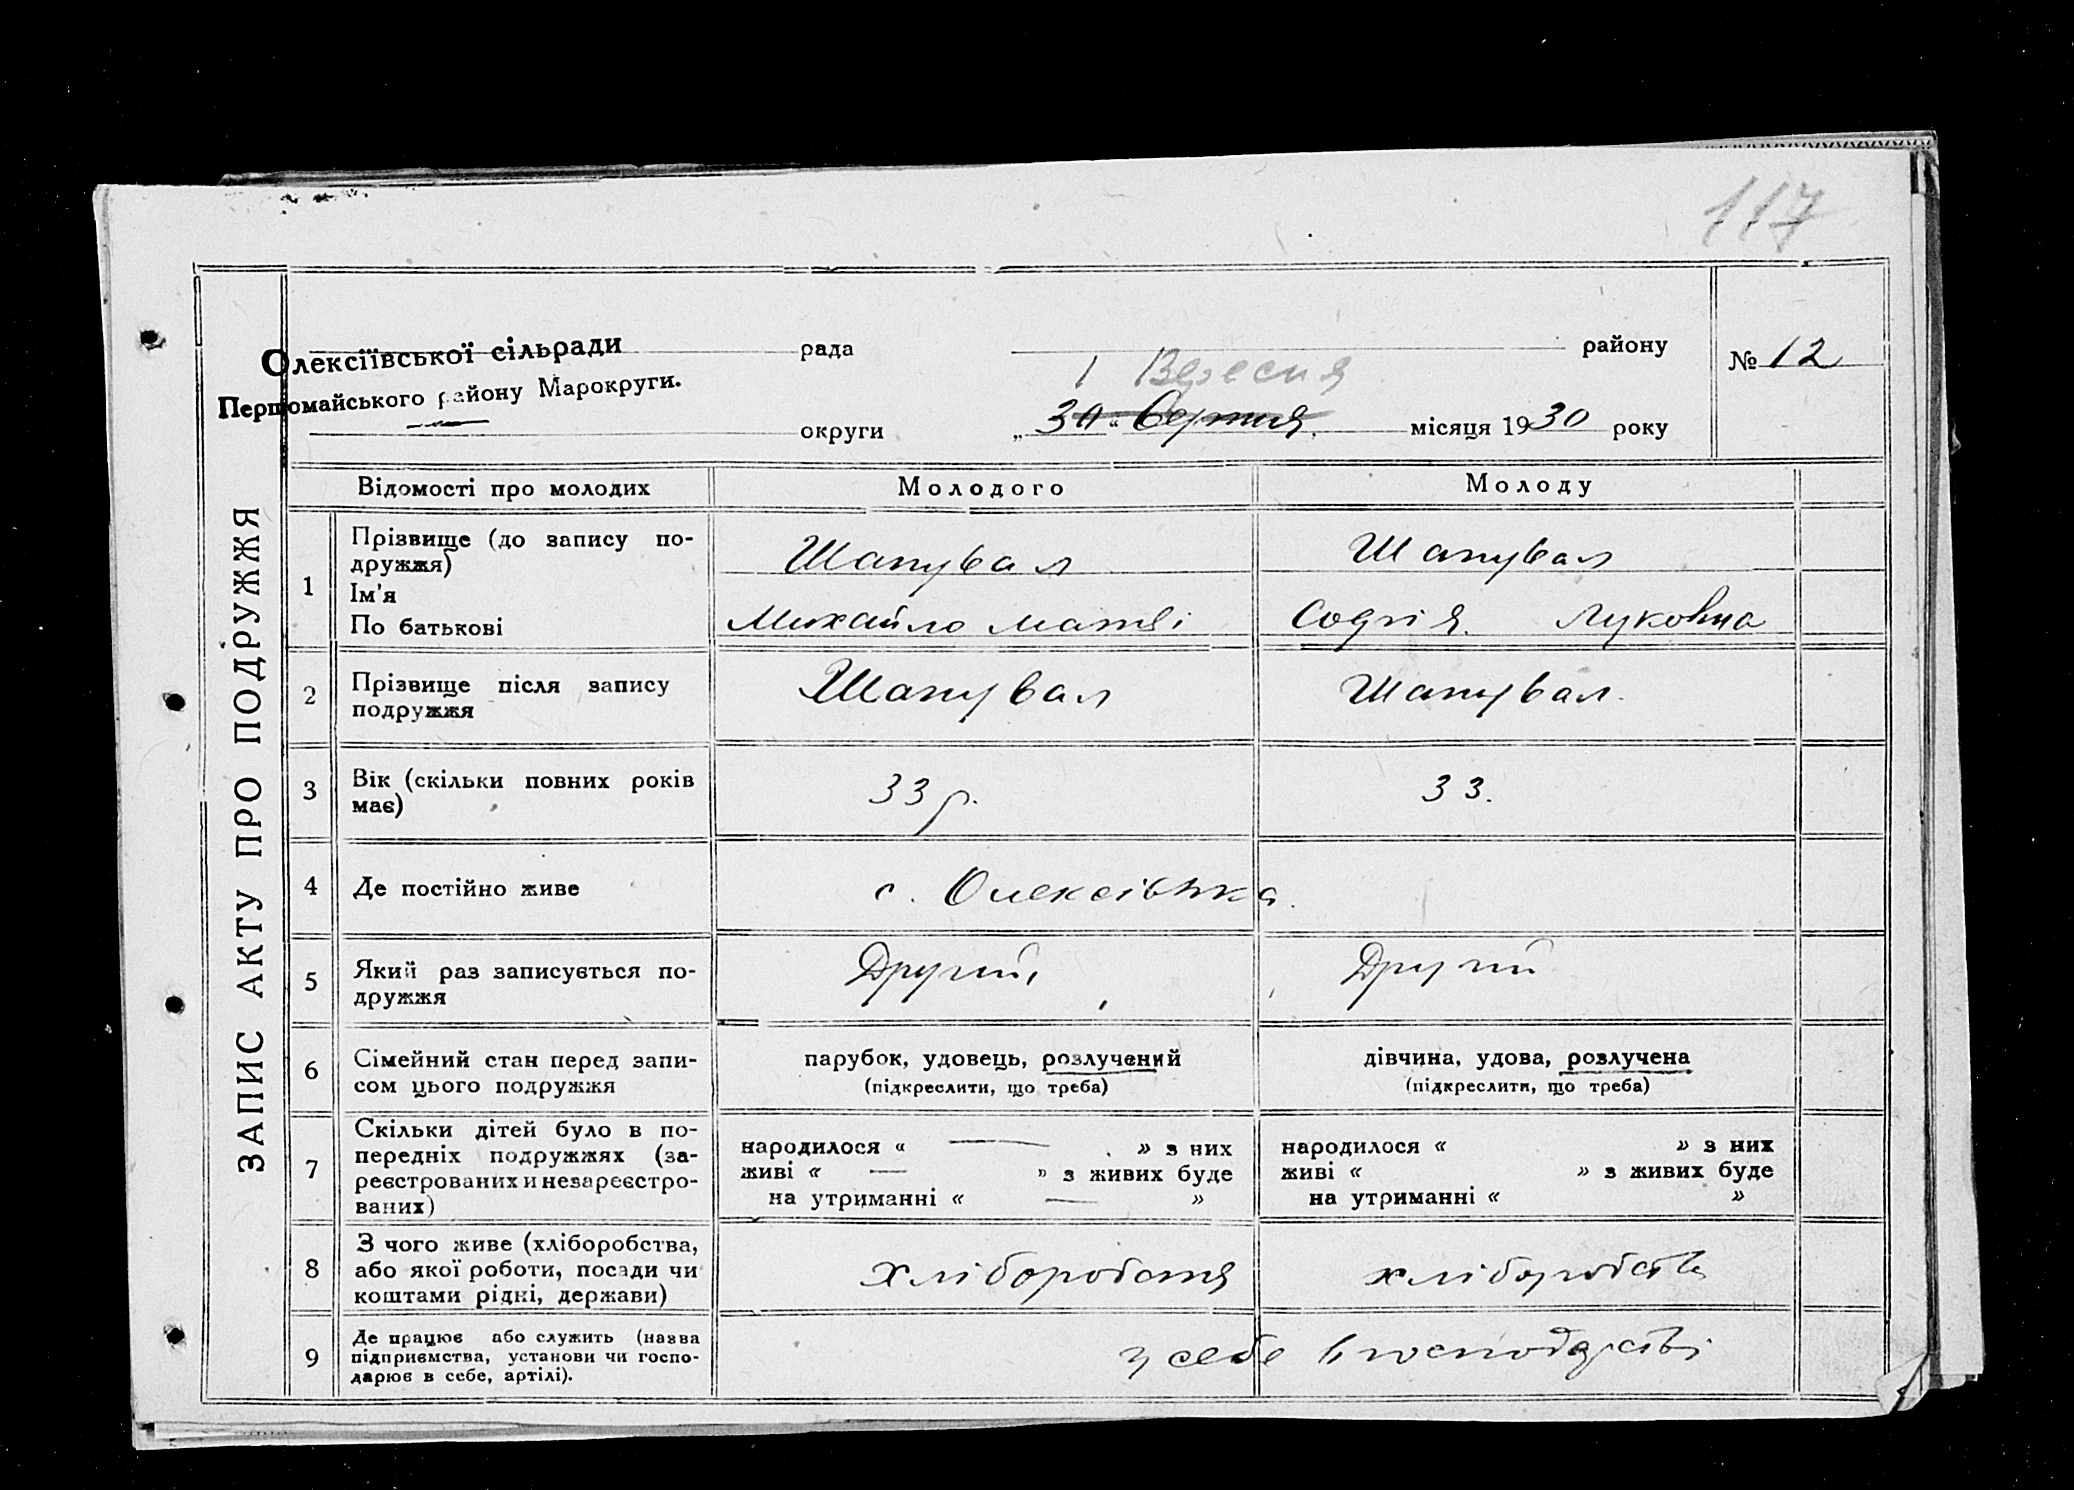 117
ЗАПИС АКТУ ПРО ПОДРУЖЖЯ
Олексіївської сільради рада району
Першомайського району Марокруги.
1 Вересня
округи „30“ Серпня місяця 1930 року
№ 12
Відомості про молодих Молодого Молоду
1 Прізвище (до запису по-
дружжя) Шаповал Шаповал
Ім'я
По батькові Михайло Матві Софія Луковна
2 Прізвище після запису
подружжя Шапувал Шапувал.
3 Вік (скільки повних років
має) 33 р. 33.
4 Де постійно живе с. Олексієвка.
5 Який раз записується по-
дружжя Другий Другий
6 Сімейний стан перед запи-
сом цього подружжя
парубок, удовець, розлучений
(підкреслити, що треба)
дівчина, удова, розлучена
(підкреслити, що треба)
7 Скільки дітей було в по-
передніх подружжях (за-
реєстрованих и незареєстро-
ваних)
народилося « — » з них
живі « — » з живих буде
на утриманні « — »
народилося « » з них
живі « » з живих буде
на утриманні « »
8 З чого живе (хліборобства,
або якої роботи, посади чи
коштами рідні, держави)
хліборобства хліборобств
9 Де працює або служить (назва
підприємства, установи чи госпо-
дарює в себе, артілі).
у себе в господарстві